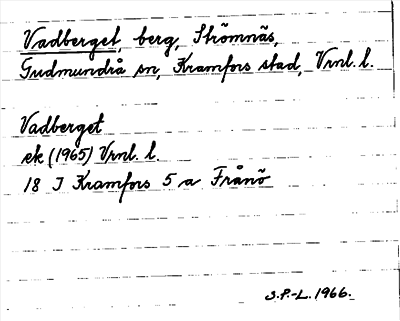 Vadberget, berg, Strömnäs,
Gudmundrå sn, Kramfors stad, Vrnl. l.
Vadberget
ek (1965) Vrnl. l.
18 I Kramfors 5 a Frånö
S.P.-L. 1966.